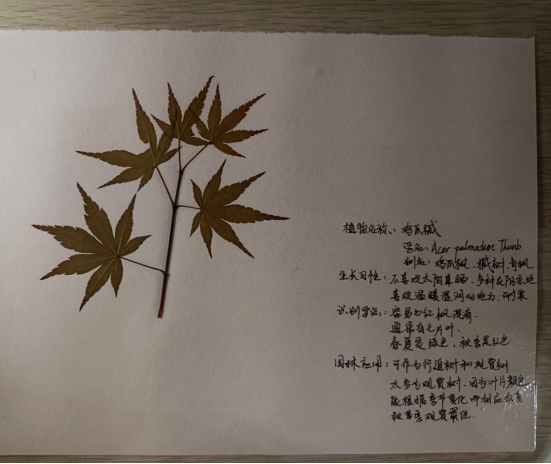 植物名称：鸡爪槭
学名：Acer palmatum Thunb
别名：鸡爪枫、槭树、青枫
生长习性：不喜欢太阳直晒，多种在阴凉地
喜欢温暖湿润的地方，耐寒
识别要点：容易与红枫混淆
通常有七片叶
春夏是绿色，秋季是红色
园林应用：可作为行道树和观赏树
大多为观赏树，因为叶片颜色
能根据季节变化
秋季季观赏最佳